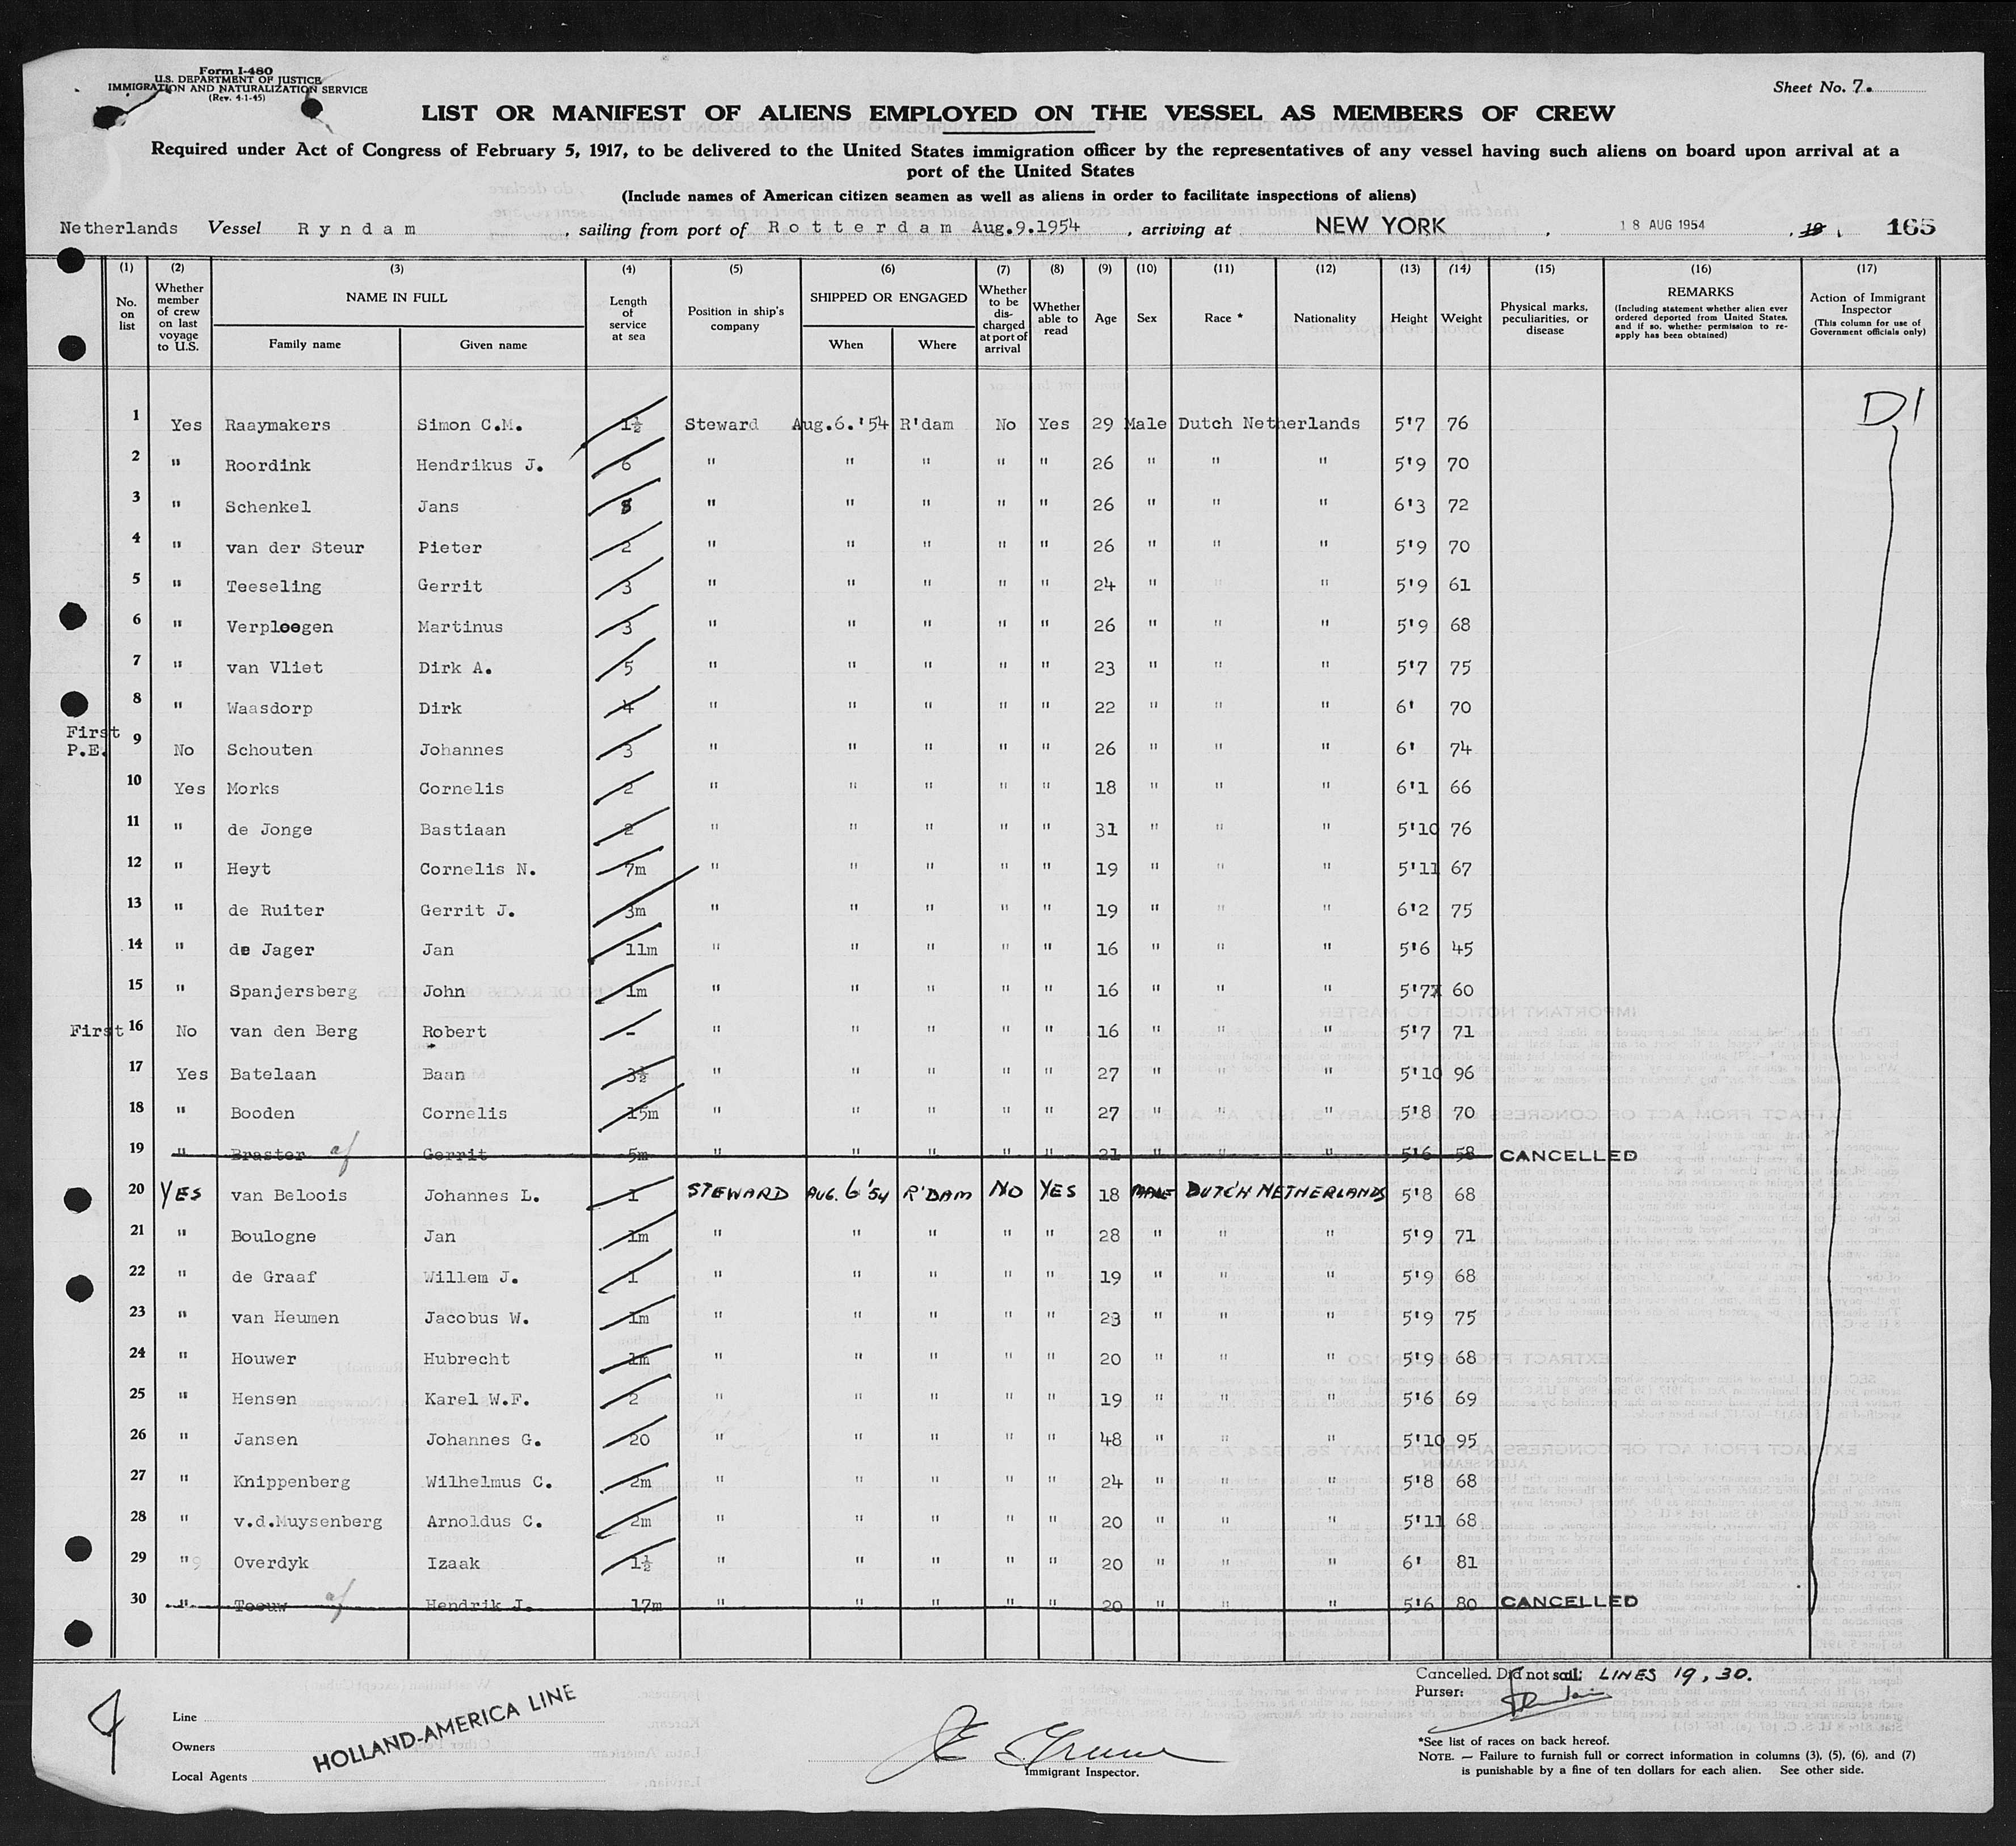 Form I-480
U.S. DEPARTMENT OF JUSTICE
IMMIGRATION AND NATURALIZATION SERVICE
(Rev. 4-1-45)
Sheet No. 7.
LIST OR MANIFEST OF ALIENS EMPLOYED ON THE VESSEL AS MEMBERS OF CREW
Required under Act of Congress of February 5, 1917, to be delivered to the United States immigration officer by the representatives of any vessel having such aliens on board upon arrival at a
port of the United States
(Include names of American citizen seamen as well as aliens in order to facilitate inspections of aliens)
Netherlands Vessel Ryndam, sailing from port of Rotterdam Aug.9.1954, arriving at NEW YORK, 18 AUG 1954, 19, 165
(1) (2) (3) (4) (5) (6) (7) (8) (9) (10) (11) (12) (13) (14) (15) (16) (17)
No. on list
Whether member of crew on last voyage to U.S.
NAME IN FULL
Family name
Given name
Length of service at sea
Position in ship's company
SHIPPED OR ENGAGED
When
Where
Whether to be discharged at port of arrival
Whether able to read
Age
Sex
Race *
Nationality
Height
Weight
Physical marks, peculiarities, or disease
REMARKS
(Including statement whether alien ever ordered deported from United States, and if so, whether permission to re-apply has been obtained)
Action of Immigrant Inspector
(This column for use of Government officials only)
D1
1 Yes Raaymakers Simon C.M. 1½ Steward Aug.6.'54 R'dam No Yes 29 Male Dutch Netherlands 5'7 76
2 " Roordink Hendrikus J. 6 " " " " " 26 " " " 5'9 70
3 " Schenkel Jans " " " " " 26 " " " 6'3 72
4 " van der Steur Pieter 2 " " " " " 26 " " " 5'9 70
5 " Teeseling Gerrit 3 " " " " " 24 " " " 5'9 61
6 " Verploegen Martinus 3 " " " " " 26 " " " 5'9 68
7 " van Vliet Dirk A. 5 " " " " " 23 " " " 5'7 75
8 " Waasdorp Dirk 4 " " " " " 22 " " " 6' 70
First P.E. 9 No Schouten Johannes 3 " " " " " 26 " " " 6' 74
10 Yes Morks Cornelis 2 " " " " " 18 " " " 6'1 66
11 " de Jonge Bastiaan 2 " " " " " 31 " " " 5'10 76
12 " Heyt Cornelis N. 7m " " " " " 19 " " " 5'11 67
13 " de Ruiter Gerrit J. 3m " " " " " 19 " " " 6'2 75
14 " de Jager Jan 11m " " " " " 16 " " " 5'6 45
15 " Spanjersberg John 1m " " " " " 16 " " " 5'7 60
First 16 No van den Berg Robert - " " " " " 16 " " " 5'7 71
17 Yes Batelaan Baan 3½ " " " " " 27 " " " 5'10 96
18 " Booden Cornelis 15m " " " " " 27 " " " 5'8 70
19 " Braster af Gerrit 5m " " " " " 21 " " " 5'6 58 CANCELLED
20 YES van Beloois Johannes L. 1 STEWARD AUG. 6 '54 R'DAM NO YES 18 MALE DUTCH NETHERLANDS 5'8 68
21 " Boulogne Jan 1m " " " " " 28 " " " 5'9 71
22 " de Graaf Willem J. 1 " " " " " 19 " " " 5'9 68
23 " van Heumen Jacobus W. 1m " " " " " 23 " " " 5'9 75
24 " Houwer Hubrecht 1m " " " " " 20 " " " 5'9 68
25 " Hensen Karel W.F. 2 " " " " " 19 " " " 5'6 69
26 " Jansen Johannes G. 20 " " " " " 48 " " " 5'10 95
27 " Knippenberg Wilhelmus C. 2m " " " " " 24 " " " 5'8 68
28 " v.d.Muysenberg Arnoldus C. 2m " " " " " 20 " " " 5'11 68
29 " Overdyk Izaak 1½ " " " " " 20 " " " 6' 81
30 " Teeuw af Hendrik J. 17m " " " " " 20 " " " 5'6 80 CANCELLED
Cancelled. Did not sail: LINES 19, 30.
Purser:
Line
Owners
Local Agents
HOLLAND-AMERICA LINE
Immigrant Inspector.
*See list of races on back hereof.
NOTE. — Failure to furnish full or correct information in columns (3), (5), (6), and (7)
is punishable by a fine of ten dollars for each alien. See other side.